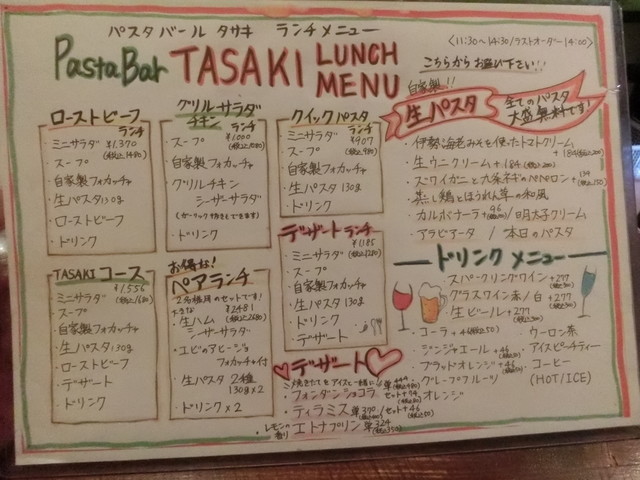 パスタバール タサキ ランチメニュー
PastaBar TASAKI LUNCH MENU
<11:30~14:30/ラストオーダー 14:00>
こちらからお選び下さい!!
ローストビーフ
ランチ
ミニサラダ ¥1,370
(税込1480)
・スープ
・自家製フォカッチャ
・生パスタ130g
・ローストビーフ
・ドリンク
グリルサラダ
チキン ランチ
¥1000
(税込1080)
・スープ
・自家製フォカッチャ
・グリルチキン
シーザーサラダ
(ガーリック抜きもできます)
・ドリンク
クイックパスタ
ランチ
・ミニサラダ ¥907
(税込980)
・スープ
・自家製フォカッチャ
・生パスタ 130g
・ドリンク
デザートランチ
¥1185
・ミニサラダ (税込1280)
・スープ
・自家製フォカッチャ
・生パスタ 130g
・ドリンク
・デザート
TASAKI コース
¥1,556
・ミニサラダ (税込1680)
・スープ
・自家製フォカッチャ
・生パスタ130g
・ローストビーフ
・デザート
・ドリンク
お得な!
ペアランチ
2名様用のセットです!
¥2481
(税込2680)
・生ハム
シーザーサラダ
・エビのアヒージョ
フォカッチャ付
・生パスタ 2種
130g×2
・ドリンク×2
自家製!!
生パスタ
全てのパスタ
大盛無料です!
・伊勢海老みそを使ったトマトクリーム
+184(税込200)
・生ウニクリーム +184(税込200)
・ズワイガニと九条ネギのペペロン +139
(税込150)
・蒸し鶏とほうれん草の和風
・カルボナーラ +96 / 明太子クリーム
・アラビアータ / 本日のパスタ
ドリンクメニュー
スパークリングワイン +277
(税込300)
グラスワイン赤/白 +277
(税込300)
・生ビール +277
(税込300)
・コーラ +46(税込50)
・ジンジャエール +46
(税込50)
・ブラッドオレンジ +46
(税込50)
・グレープフルーツ
・オレンジ
・ウーロン茶
・アイスピーチティー
・コーヒー
(HOT/ICE)
デザート
焼きたてをアイスと一緒に
・フォンダンショコラ 単444 セット+74
・ティラミス 単370/セット+46
(税込400) (税込50)
レモンの香り
・エトナプリン 単324
(税込350)